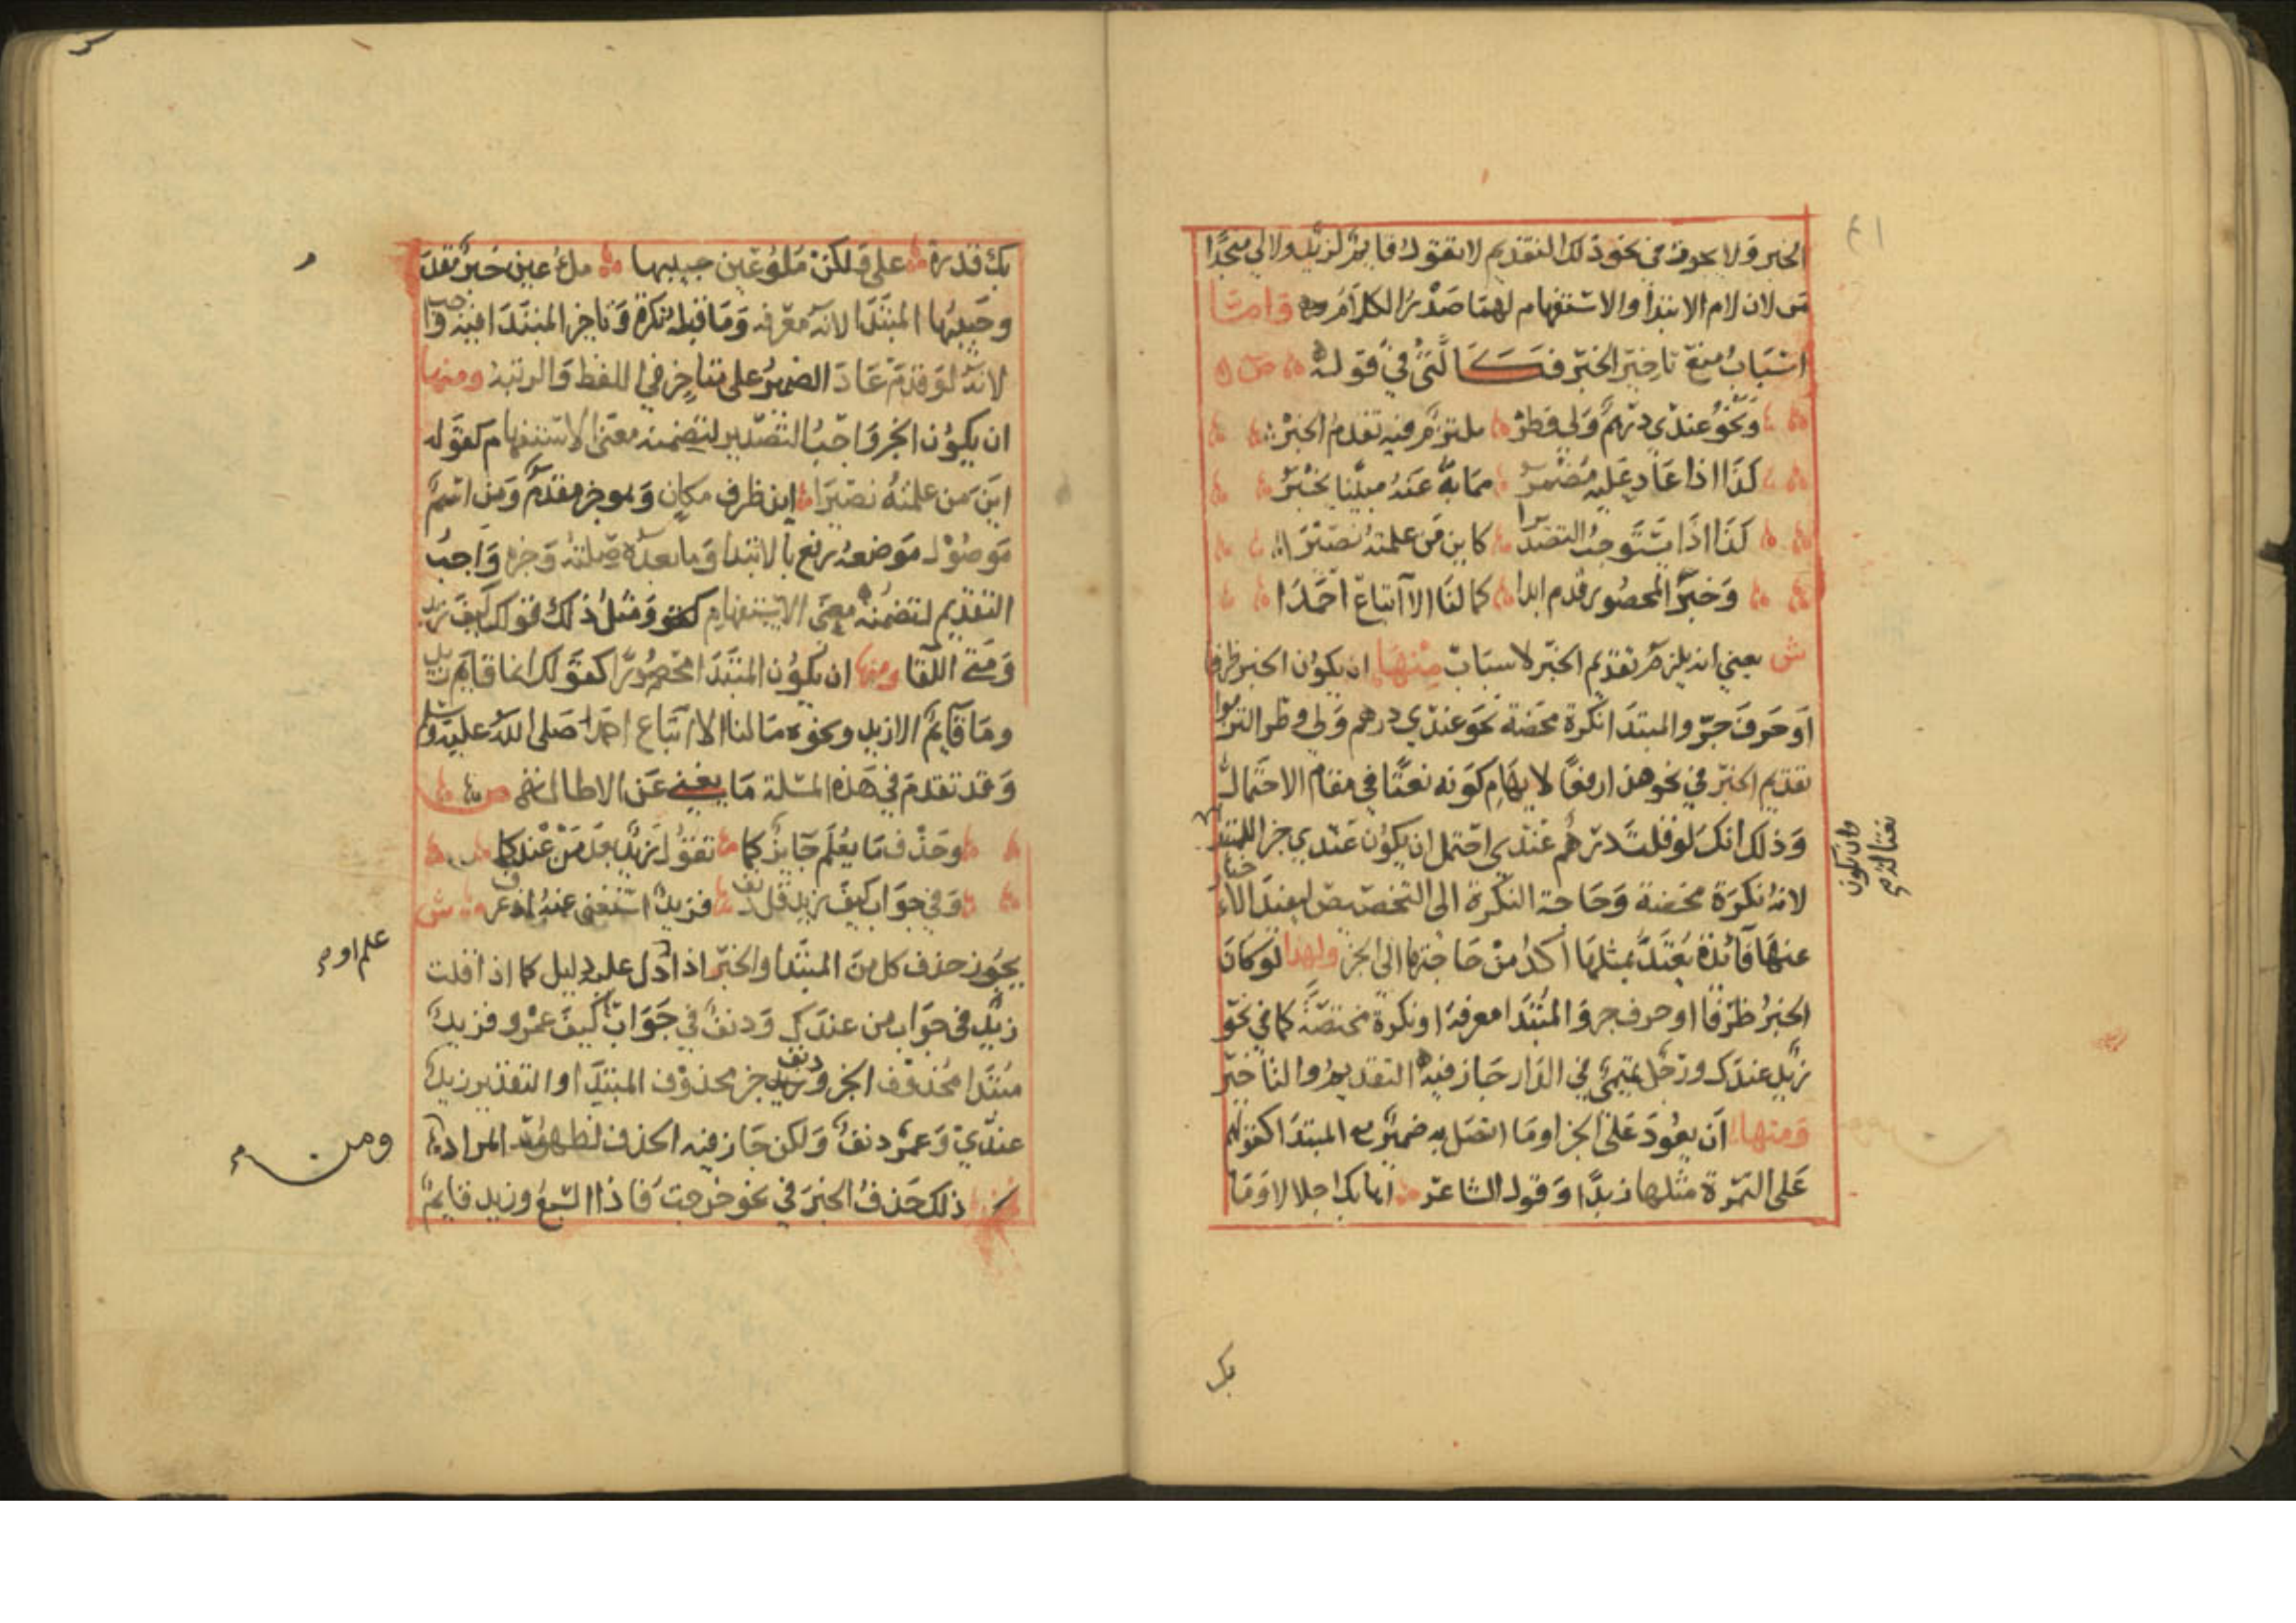 الخبر ولا يجوز في نحو ذلك التقديم لا تقول قايم لزيد ولا لي منجدا
من لان لام الابتدا والاستفهام لهما صدر الكلام واما
اسباب منع تاخير الخبر فكالتي في قوله ص
ونحو عندي درهم ولي وطر ملتزم فيه تقدم الخبر
كذا اذا عاد عليه مضمر مما به عنه مبينا يخبر
كذا اذا يستوجب التصديرا كاين من علمته نصيرا
وخبر المحصور قدم ابدا كما لنا الا اتباع احمدا
ش يعني انه يلزم تقديم الخبر لاسباب منها ان يكون الخبر ظرفا
او حرف جر والمبتدا نكرة محضة نحو عندي درهم ولي وطر التزموا
تقديم الخبر في نحو هذا رفعا لايهام كونه نعتا في مقام الاحتمال
وذلك انك لو قلت درهم عندي احتمل ان يكون عندي خبر المبتدا
وان يكون
نعتا له
لانه نكرة محضة وحاجة النكرة الى التخصيص ليفيد الاخبار
عنها فائدة يعتد بمثلها اكد من حاجتها الى الخبر ولهذا لو كان
الخبر ظرفا او حرف جر والمبتدا معرفة او نكرة مختصة كما في نحو
زيد عندك ورجل تميمي في الدار جاز فيه التقديم والتاخير
ومنها ان يعود على الخبر او ما اتصل به ضمير من المبتدا كقولهم
على التمرة مثلها زبدا وقول الشاعر اهابك اجلالا وما
بك
بك قدرة علي ولكن ملؤ عين حبيبها ملؤ عين خبر مقدم
وحبيبها المبتدا لانه معرفة وما قبله نكرة وتاخير المبتدا فيه واجب
لانه لو قدم عاد الضمير على متاخر في اللفظ والرتبة ومنها
ان يكون الخبر واجب التصدير لتضمنه معنى الاستفهام كقوله
اين من علمته نصيرا اين ظرف مكان وهو خبر مقدم ومن اسم
موصول موضعه رفع بالابتدا وما بعده صلته وخبره واجب
التقديم لتضمنه معنى الاستفهام ومثل ذلك قولك كيف زيد
ومتى اللقا ومنها ان يكون المبتدا محصورا كقولك انما قايم زيد
وما قايم الا زيد ونحوه ما لنا الا اتباع احمدا صلى الله عليه وسلم
وقد تقدم في هذه المسلة ما يغني عن الاطالة ص
وحذف ما يعلم جايز كما تقول زيد بعد من عندكما
وفي جواب كيف زيد قل دنف فزيد استغني عنه اذ عرف ش
يجوز حذف كل من المبتدا والخبر اذا دل عليه دليل كما اذا قلت
علم او م
زيد في جواب من عندك ودنف في جواب كيف عمرو فزيد
مبتدا محذوف الخبر ودنف خبر محذوف المبتدا والتقدير زيد
عندي وعمرو دنف ولكن جاز فيه الحذف لظهور المراد
ومن
ذلك حذف الخبر في نحو خرجت فاذا السبع وزيد قايم